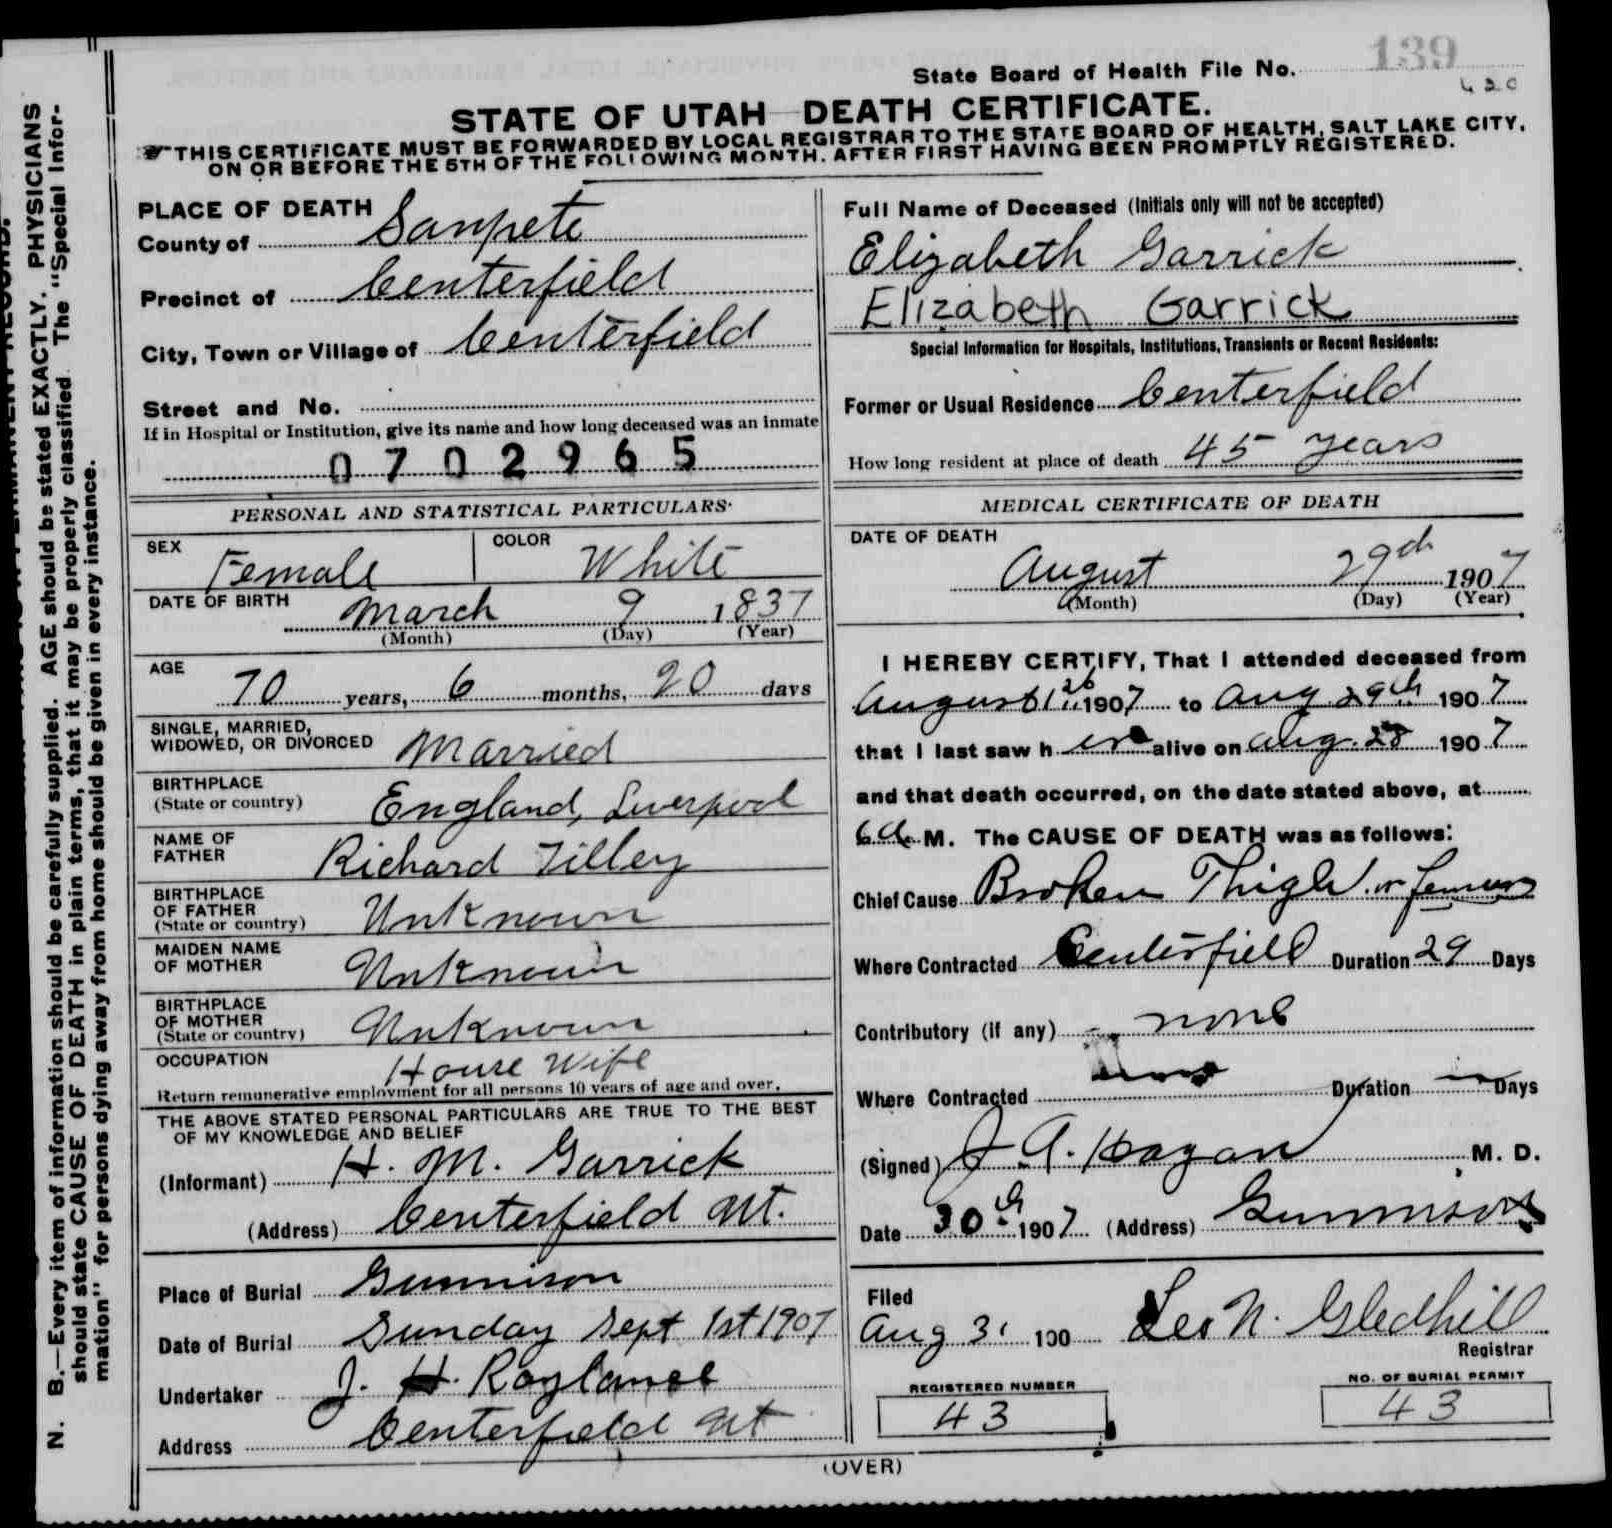 N. B.—Every item of information should be carefully supplied. AGE should be stated EXACTLY. PHYSICIANS
should state CAUSE OF DEATH in plain terms, that it may be properly classified The "Special Infor-
mation" for persons dying away from home should be given in every instance.
139
State Board of Health File No.
420
STATE OF UTAH DEATH CERTIFICATE.
THIS CERTIFICATE MUST BE FORWARDED BY LOCAL REGISTRAR TO THE STATE BOARD OF HEALTH, SALT LAKE CITY,
ON OR BEFORE THE 5TH OF THE FOLLOWING MONTH. AFTER FIRST HAVING BEEN PROMPTLY REGISTERED.
PLACE OF DEATH
County of Sanpete
Precinct of Centerfield
City, Town or Village of Centerfield
Street and No.
If in Hospital or Institution, give its name and how long deceased was an inmate
0702965
PERSONAL AND STATISTICAL PARTICULARS.
SEX Female COLOR White
DATE OF BIRTH March 9 1837
(Month) (Day) (Year)
AGE 70 years, 6 months, 20 days
SINGLE, MARRIED,
WIDOWED, OR DIVORCED Married
BIRTHPLACE
(State or country) England, Liverpool
NAME OF
FATHER Richard Tilley
BIRTHPLACE
OF FATHER
(State or country) Unknown
MAIDEN NAME
OF MOTHER Unknown
BIRTHPLACE
OF MOTHER
(State or country) Unknown
OCCUPATION House Wife
Return remunerative employment for all persons 10 years of age and over.
THE ABOVE STATED PERSONAL PARTICULARS ARE TRUE TO THE BEST
OF MY KNOWLEDGE AND BELIEF
(Informant) H. M. Garrick
(Address) Centerfield Ut.
Place of Burial Gunnison
Date of Burial Sunday Sept 1st 1907
Undertaker J. H. Roylance
Address Centerfield Ut
Full Name of Deceased (Initials only will not be accepted)
Elizabeth Garrick
Elizabeth Garrick
Special Information for Hospitals, Institutions, Transients or Recent Residents:
Former or Usual Residence Centerfield
How long resident at place of death 45 years
MEDICAL CERTIFICATE OF DEATH
DATE OF DEATH
August 29th 1907
(Month) (Day) (Year)
I HEREBY CERTIFY, That I attended deceased from
August 1907 to Aug 29th 1907
that I last saw her alive on Aug. 28 1907
and that death occurred, on the date stated above, at
6 a M. The CAUSE OF DEATH was as follows:
Chief Cause Broken Thigh or femur
Where Contracted Centerfield Duration 29 Days
Contributory (if any) none
Where Contracted Duration Days
(Signed) J. A. Hagan M. D.
Date 30th 1907 (Address) Gunnison
Filed
Aug 31 190 Leo N. Gledhill
Registrar
REGISTERED NUMBER
43
NO. OF BURIAL PERMIT
43
(OVER)